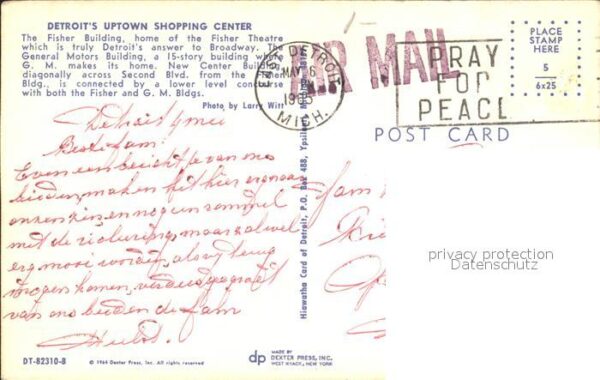 DETROIT'S UPTOWN SHOPPING CENTER
The Fisher Building, home of the Fisher Theatre
which is truly Detroit's answer to Broadway. The
General Motors Building, a 15-story building where
G. M. makes its home. New Center Building
diagonally across Second Blvd. from the
Bldg., is connected by a lower level concourse
with both the Fisher and G. M. Bldgs.
Photo by Larry Witt
AIR MAIL
DETROIT
MAY 6
1965
MICH.
PRAY
FOR
PEACE
PLACE
STAMP
HERE
5
6x25
POST CARD
Detroit 4 mei
Beste fam:
Even een bericht je van ons
beiden, maken het hier
en nog un rommel
met de maar al wel
erg mooi worden, als wy terug
komen, gegroet
van ons beiden de fam
fam
Hiawatha Card of Detroit, P.O. Box 488, Ypsilanti, Michigan
privacy protection
Datenschutz
DT-82310-B
© 1964 Dexter Press, Inc. All rights reserved
dp
MADE BY
DEXTER PRESS, INC.
WEST NYACK, NEW YORK